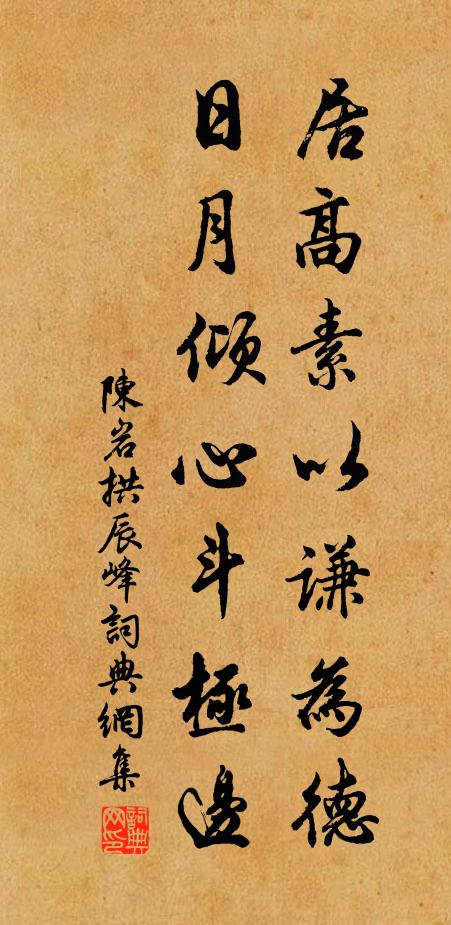 居高素以謙為德
日月傾心斗極邊
陳岩拱辰峰詞典網集
詞典网印